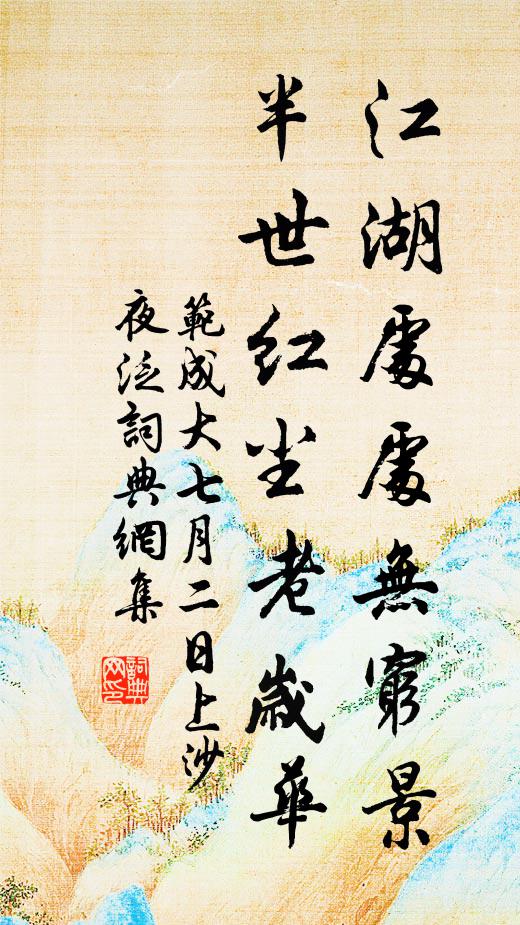 江湖處處無窮景
半世红尘老歲華
範成大七月二日上沙
夜泛詞典網集
詞典网印